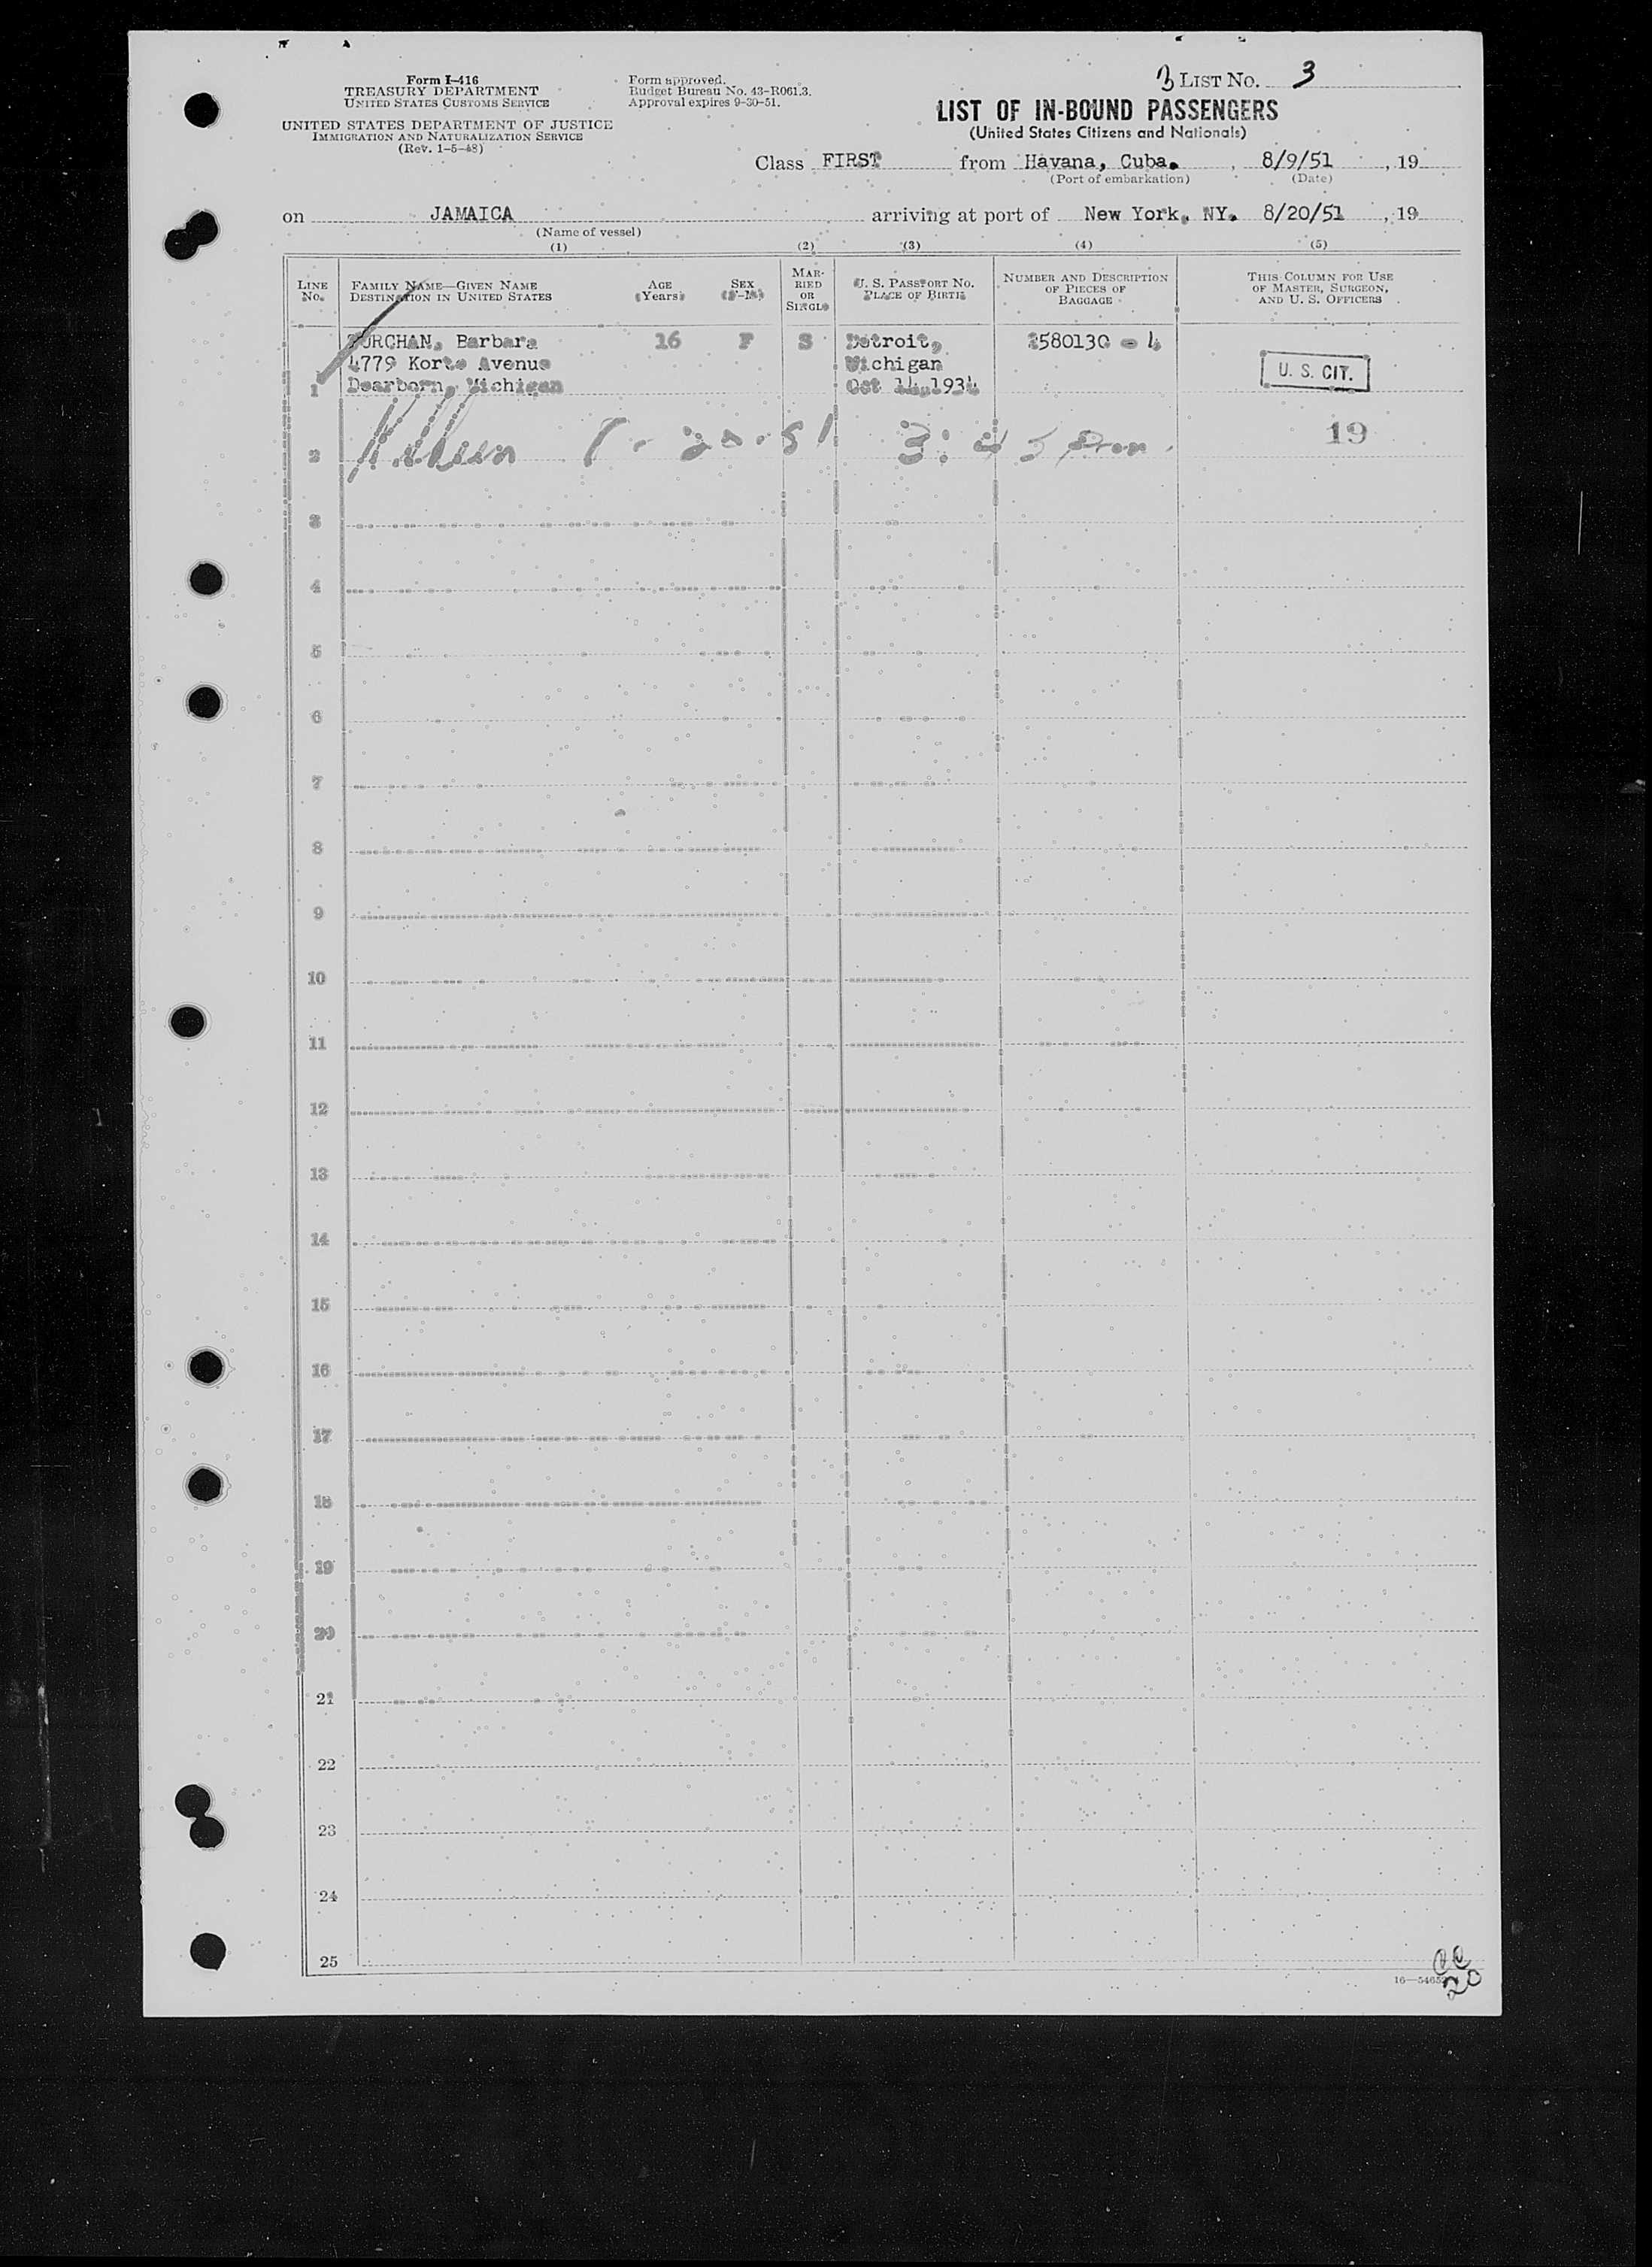 3 LIST NO. 3
Form I-416
TREASURY DEPARTMENT
UNITED STATES CUSTOMS SERVICE
UNITED STATES DEPARTMENT OF JUSTICE
IMMIGRATION AND NATURALIZATION SERVICE
(Rev. 1-5-48)
Form approved.
Budget Bureau No. 43-R061.3.
Approval expires 9-30-51.
LIST OF IN-BOUND PASSENGERS
(United States Citizens and Nationals)
Class FIRST from Havana, Cuba. , 8/9/51 , 19
(Port of embarkation) (Date)
on JAMAICA arriving at port of New York, NY. 8/20/51 , 19
(Name of vessel)
(1) (2) (3) (4) (5)
LINE NO.
FAMILY NAME—GIVEN NAME
DESTINATION IN UNITED STATES
AGE
(Years)
SEX
(F-M)
MAR-
RIED
OR
SINGLE
U. S. PASSPORT NO.
PLACE OF BIRTH
NUMBER AND DESCRIPTION
OF PIECES OF
BAGGAGE
THIS COLUMN FOR USE
OF MASTER, SURGEON,
AND U. S. OFFICERS
Barbara 16 F S Detroit, 580130 - 4
4779 Korte Avenue Michigan
1 Dearborn, Michigan Oct 14, 1934
U. S. CIT.
2 8-20-51 3:45 pm
19
3
4
5
6
7
8
9
10
11
12
13
14
15
16
17
18
19
20
21
22
23
24
25
20